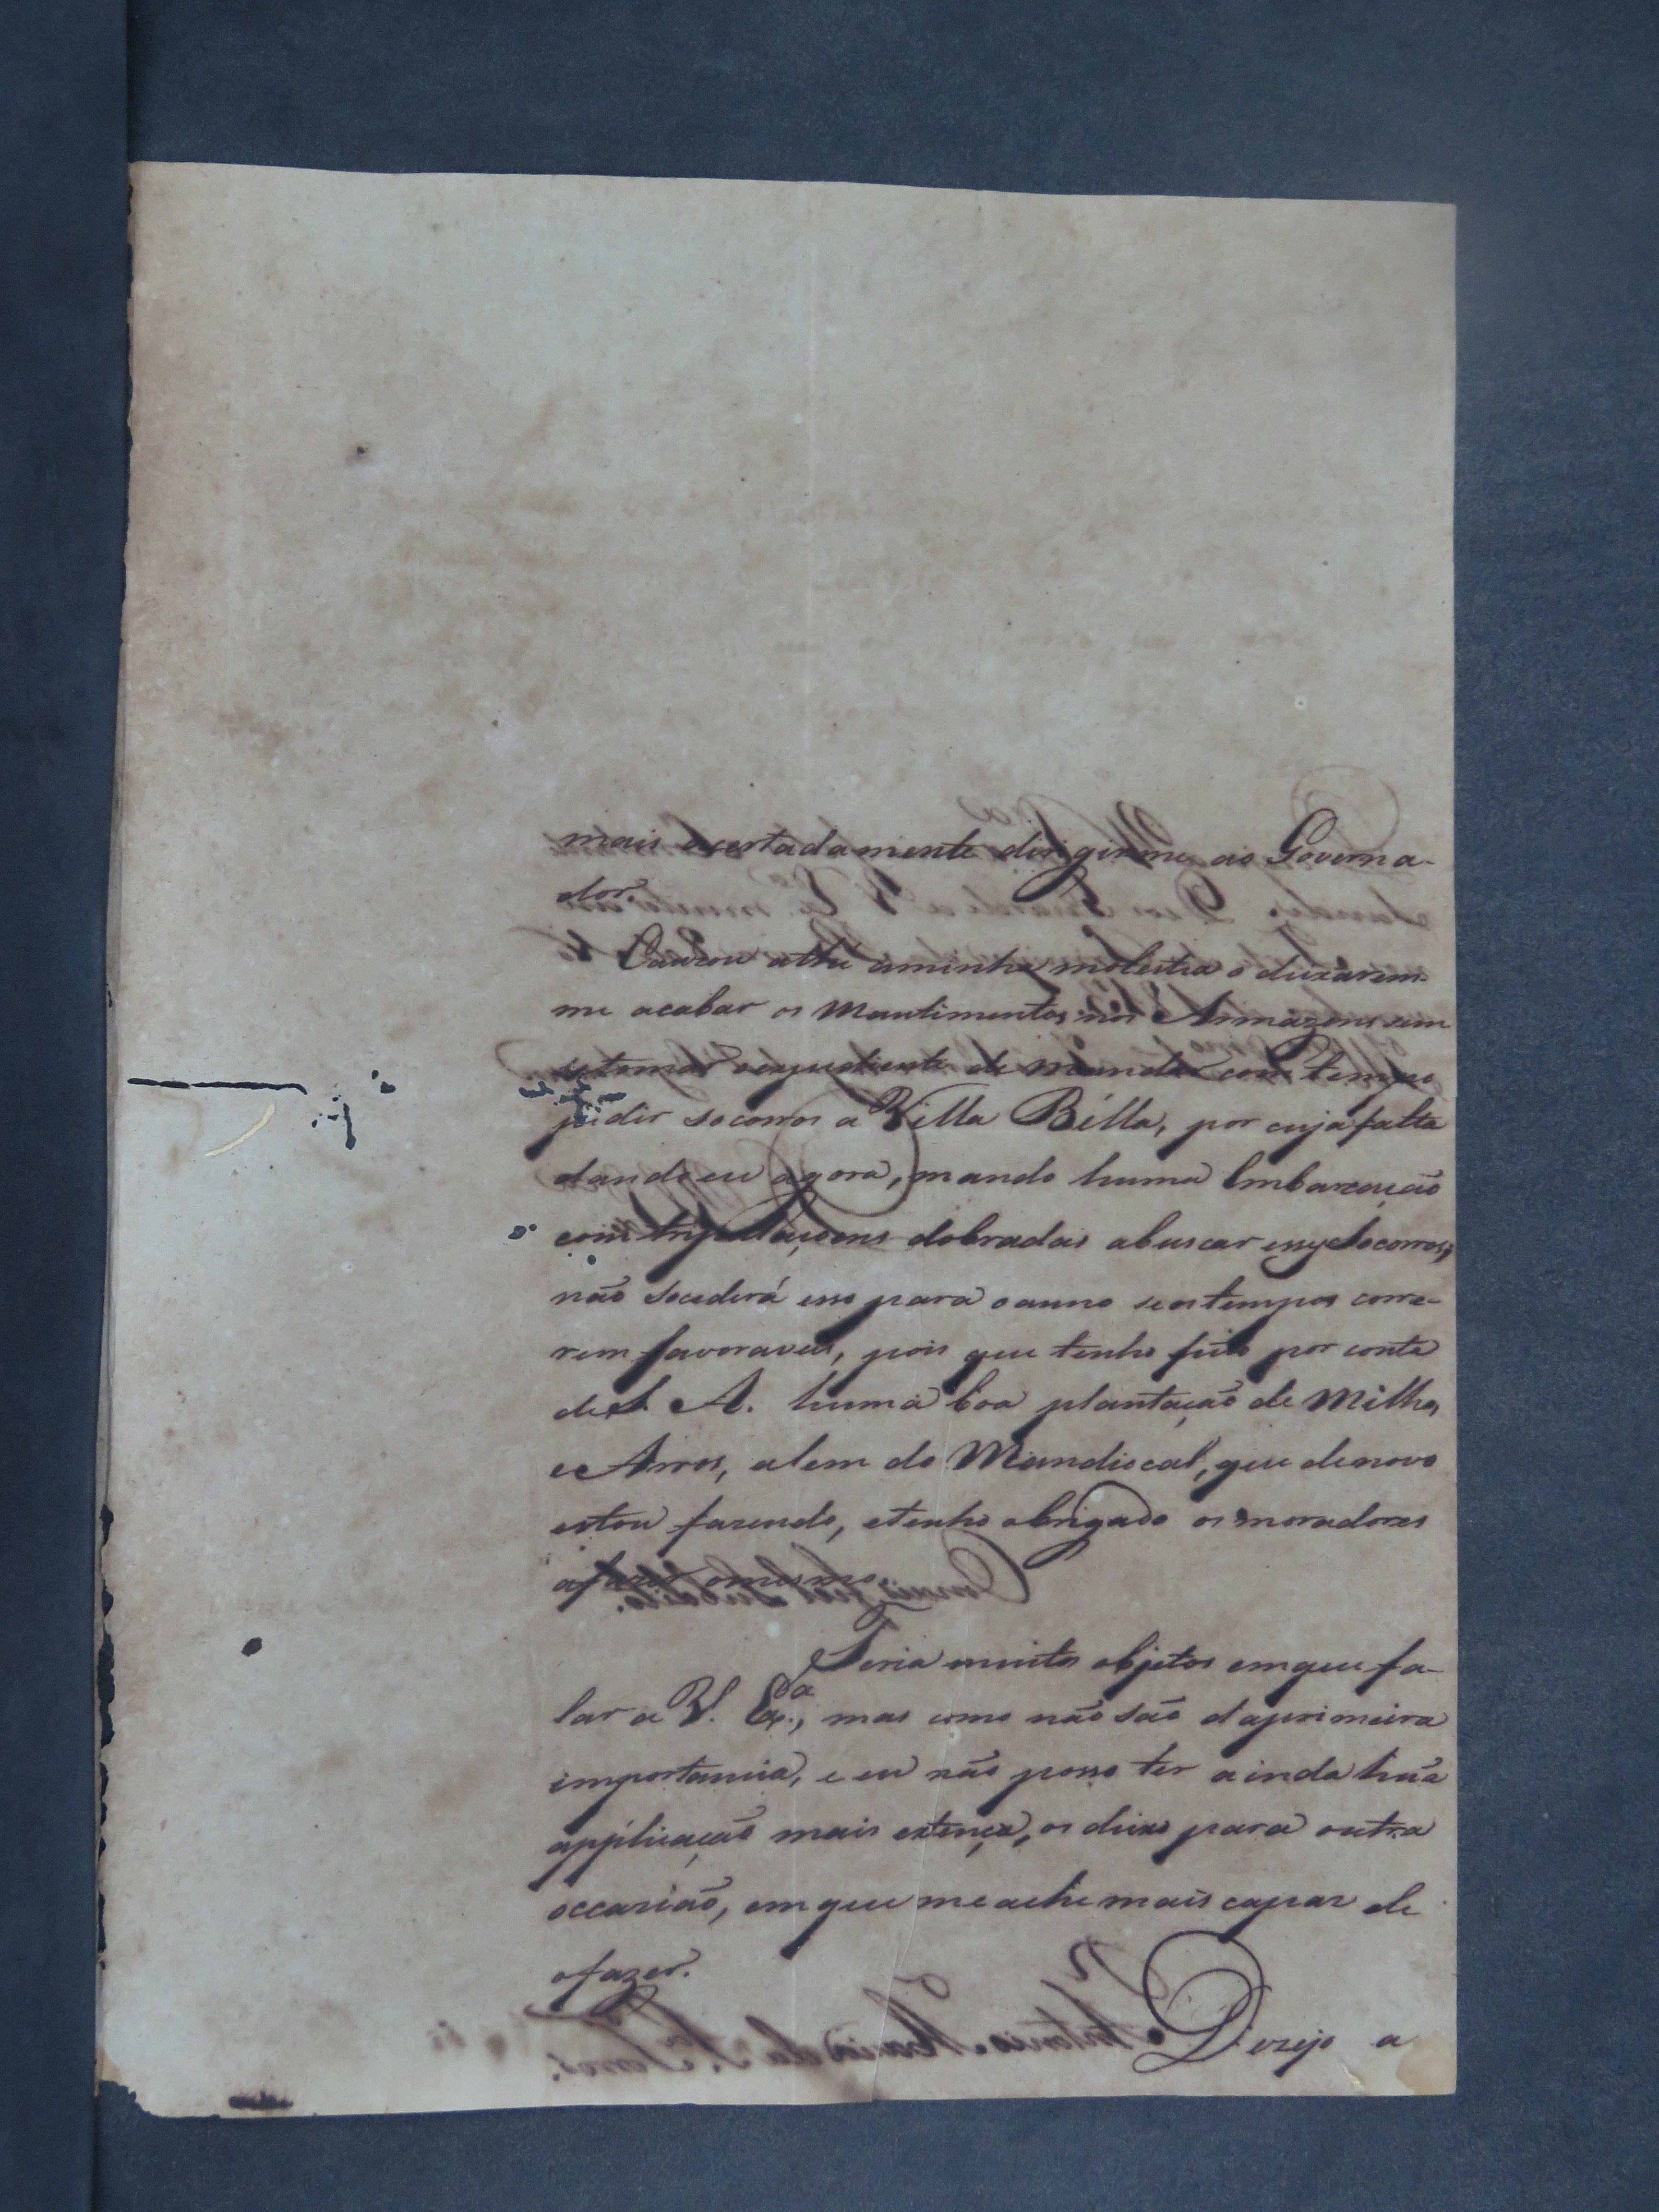 mais acertadamente dirigirme ao Governa-
dor.
Cauzou athé aminha molestia o deixarem-
me acabar os Mantimentos nos Armazens sem
setomar oexpediente de mandar com tempo
pedir socorros a Villa Bélla, por cuja falta
dando eu agora, mando huma Embarcação
com tripulaçoens dobradas abuscar esses Socorros;
não socederá isso para oanno seostempos corre-
rem favoraveis, pois que tenho feito por conta
de S. A. huma boa plantação de Milho,
e Arros, alem do Mandiocal, que denovo
estou fazendo, etenho obrigado os moradores
afazer omesmo.
Teria muitos objetos emque fa-
lar a V. Exª., mas como não são daprimeira
importancia, e eu não posso ter ainda huã
applicação mais extença, os deixo para outra
occazião, emque meache mais capaz de
ofazer.
Dezejo a